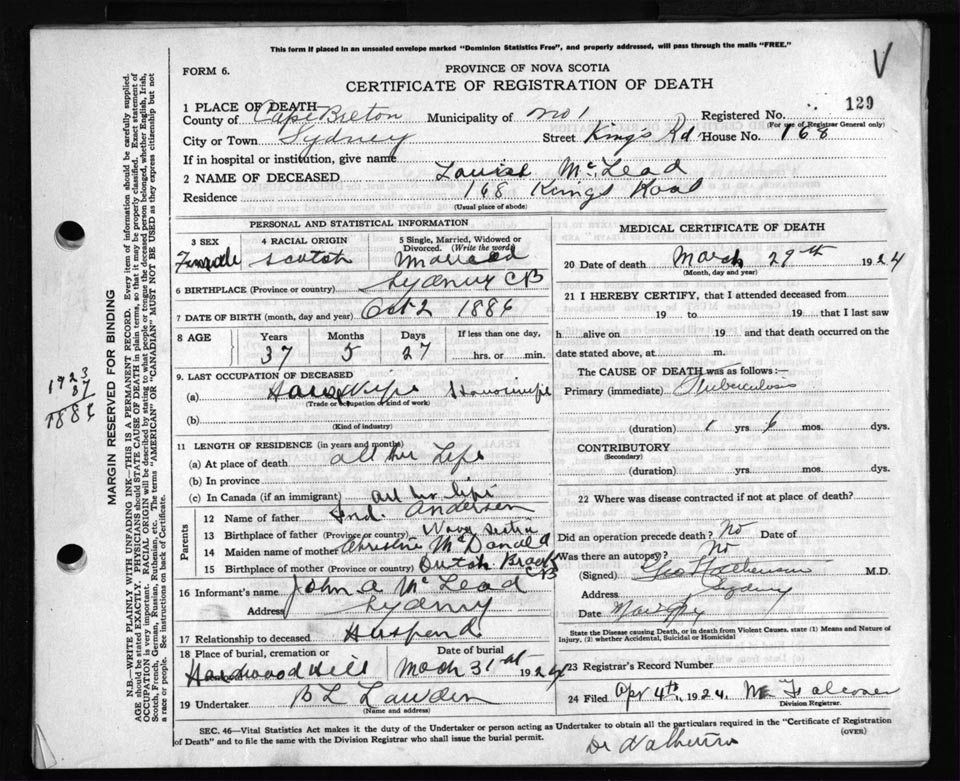 This form if placed in an unsealed envelope marked "Dominion Statistics Free", and properly addressed, will pass through the mails "FREE."
V
FORM 6.
PROVINCE OF NOVA SCOTIA
CERTIFICATE OF REGISTRATION OF DEATH
1 PLACE OF DEATH
County of Cape Breton Municipality of No 1 Registered No. 129
(For use of Registrar General only)
City or Town Sydney Street King's Rd House No. 168
If in hospital or institution, give name
2 NAME OF DECEASED Louise McLead
Residence 168 Kings Road
(Usual place of abode)
PERSONAL AND STATISTICAL INFORMATION
3 SEX 4 RACIAL ORIGIN 5 Single, Married, Widowed or Divorced. (Write the word)
Female Scotch Married
6 BIRTHPLACE (Province or country) Sydney CB
7 DATE OF BIRTH (month, day and year) Oct 2 1886
8 AGE Years Months Days If less than one day,
37 5 27 hrs. or min.
9 LAST OCCUPATION OF DECEASED
(a) Housewife Housewife
(Trade or occupation or kind of work)
(b)
(Kind of industry)
11 LENGTH OF RESIDENCE (in years and months)
(a) At place of death all her Life
(b) In province
(c) In Canada (if an immigrant) all her life
Parents
12 Name of father Andersen
13 Birthplace of father (Province or country) Nova Scotia
14 Maiden name of mother Christine McDonald
15 Birthplace of mother (Province or country) Dutch Brook CB
16 Informant's name John A McLead
Address Sydney
17 Relationship to deceased Huspend
18 Place of burial, cremation or Date of burial
Hardwood Hill March 31st 1924
19 Undertaker
(Name and address)
MEDICAL CERTIFICATE OF DEATH
20 Date of death March 29th 1924
(Month, day and year)
21 I HEREBY CERTIFY, that I attended deceased from
19 to 19 that I last saw
h alive on 19 and that death occurred on the
date stated above, at m.
The CAUSE OF DEATH was as follows:—
Primary (immediate) Tuberculosis
(duration) 1 yrs. 6 mos. dys.
CONTRIBUTORY
(Secondary)
(duration) yrs. mos. dys.
22 Where was disease contracted if not at place of death?
Did an operation precede death? No Date of
Was there an autopsy? No
(Signed) M.D.
Address Sydney
Date
State the Disease causing Death, or in death from Violent Causes, state (1) Means and Nature of Injury, (2) whether Accidental, Suicidal or Homicidal
23 Registrar's Record Number
24 Filed Apr 4th, 1924.
Division Registrar.
SEC. 46—Vital Statistics Act makes it the duty of the Undertaker or person acting as Undertaker to obtain all the particulars required in the "Certificate of Registration
of Death" and to file the same with the Division Registrar who shall issue the burial permit.
(OVER)
MARGIN RESERVED FOR BINDING
N.B.—WRITE PLAINLY WITH UNFADING INK—THIS IS A PERMANENT RECORD. Every item of information should be carefully supplied.
AGE should be stated EXACTLY. PHYSICIANS should STATE CAUSE OF DEATH in plain terms, so that it may be properly classified. Exact statement of
OCCUPATION is very important. RACIAL ORIGIN will be described by stating to what people or tongue the deceased person belonged, whether English, Irish,
Scotch, French, German, Russian, Ruthenian, etc. The terms "AMERICAN" or "CANADIAN" MUST NOT BE USED as they express citizenship but not
a race or people. See instructions on back of Certificate.
1923
37
1886